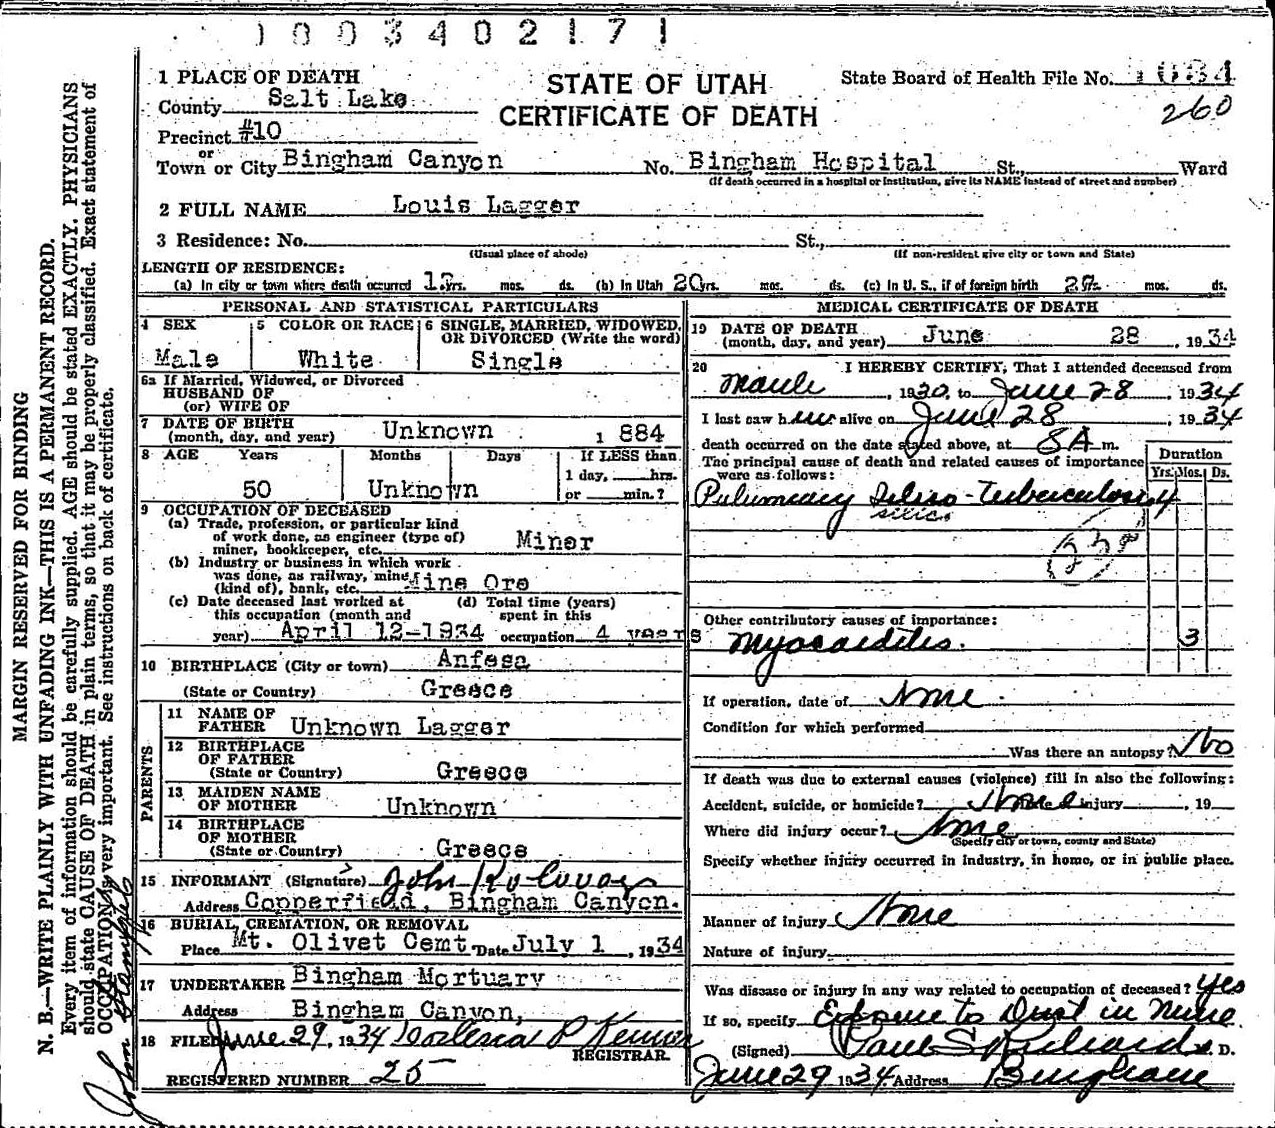 1003402171
1 PLACE OF DEATH
County Salt Lake
Precinct #10
or
Town or City Bingham Canyon No. Bingham Hospital St., Ward
(If death occurred in a hospital or institution, give its NAME instead of street and number)
STATE OF UTAH
CERTIFICATE OF DEATH
State Board of Health File No. 1084
260
2 FULL NAME Louis Lagger
3 Residence: No. St.,
(Usual place of abode) (If non-resident give city or town and State)
LENGTH OF RESIDENCE:
(a) In city or town where death occurred yrs. mos. ds. (b) In Utah 20 yrs. mos. ds. (c) In U. S., if of foreign birth mos. ds.
PERSONAL AND STATISTICAL PARTICULARS
4 SEX 5 COLOR OR RACE 6 SINGLE, MARRIED, WIDOWED, OR DIVORCED (Write the word)
Male White Single
6a If Married, Widowed, or Divorced
HUSBAND OF
(or) WIFE OF
7 DATE OF BIRTH
(month, day, and year) Unknown 1884
8 AGE Years Months Days If LESS than
1 day, hrs.
50 Unknown or min.?
9 OCCUPATION OF DECEASED
(a) Trade, profession, or particular kind
of work done, as engineer (type of)
miner, bookkeeper, etc. Miner
(b) Industry or business in which work
was done, as railway, mine
(kind of), bank, etc. Mine Ore
(c) Date deceased last worked at (d) Total time (years)
this occupation (month and spent in this
year) April 12-1934 occupation 4 years
10 BIRTHPLACE (City or town) Anfesa
(State or Country) Greece
PARENTS
11 NAME OF
FATHER Unknown Lagger
12 BIRTHPLACE
OF FATHER
(State or Country) Greece
13 MAIDEN NAME
OF MOTHER Unknown
14 BIRTHPLACE
OF MOTHER
(State or Country) Greece
15 INFORMANT (Signature) John
Address Copperfield, Bingham Canyon.
16 BURIAL, CREMATION, OR REMOVAL
Place Mt. Olivet Cemt. Date July 1, 1934
17 UNDERTAKER Bingham Mortuary
Address Bingham Canyon,
18 FILED June 29, 1934
REGISTRAR.
REGISTERED NUMBER 25
MEDICAL CERTIFICATE OF DEATH
19 DATE OF DEATH
(month, day, and year) June 28, 1934
20 I HEREBY CERTIFY, That I attended deceased from
, 1930, to June 28, 1934
I last saw him alive on June 28, 1934
death occurred on the date stated above, at 8 A m.
The principal cause of death and related causes of importance
were as follows:
Duration
Yrs. Mos. Ds.
Pulmonary Silico-Tuberculosis 4
silic.
Other contributory causes of importance:
Myocarditis. 3
If operation, date of None
Condition for which performed
Was there an autopsy? No
If death was due to external causes (violence) fill in also the following:
Accident, suicide, or homicide? None injury , 19
Where did injury occur? None
(Specify city or town, county and State)
Specify whether injury occurred in industry, in home, or in public place.
Manner of injury None
Nature of injury
Was disease or injury in any way related to occupation of deceased? Yes
If so, specify Exposure to Dust in Mine
(Signed) Paul S Richards M. D.
June 29 1934 Address Bingham
MARGIN RESERVED FOR BINDING
N. B.—WRITE PLAINLY WITH UNFADING INK—THIS IS A PERMANENT RECORD.
Every item of information should be carefully supplied. AGE should be stated EXACTLY. PHYSICIANS
should state CAUSE OF DEATH in plain terms, so that it may be properly classified. Exact statement of
OCCUPATION is very important. See instructions on back of certificate.
John